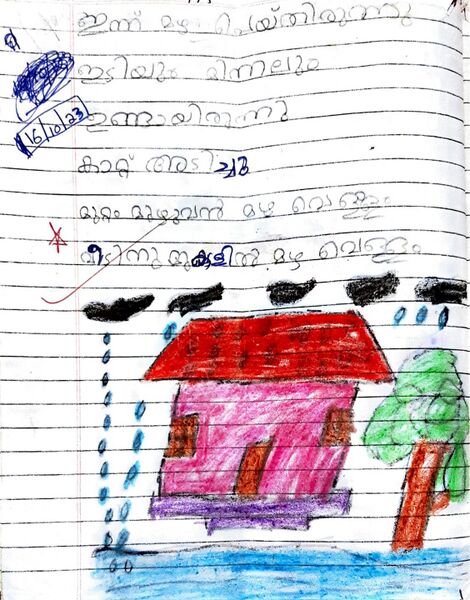 ഇന്ന് മഴ പെയ്തിരുന്നു
ഇടിയും മിന്നലും
16/10/23
ഉണ്ടായിരുന്നു
കാറ്റ് അടിച്ചു
മുറ്റം മുഴുവൻ മഴ വെള്ളം
വീടിനു മുകളിൽ മഴ വെള്ളം